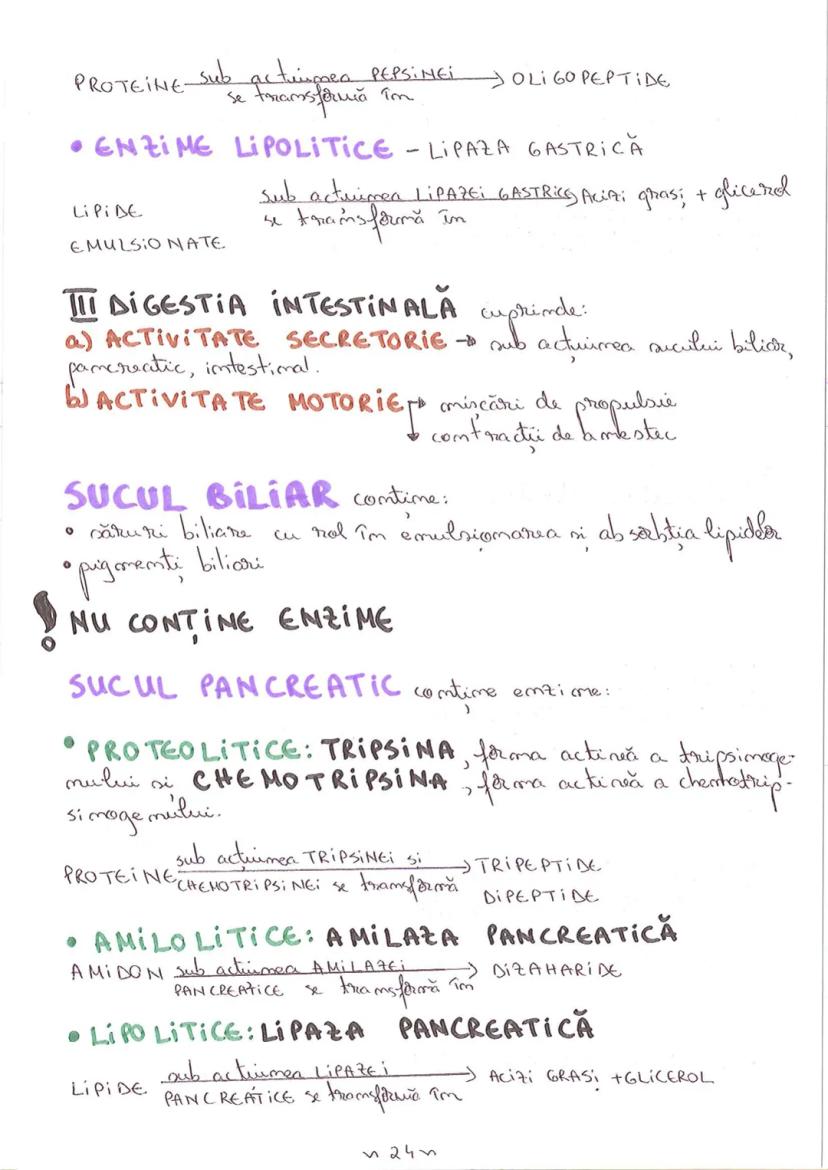 PROTEINE sub acțiunea PEPSINEI → OLIGOPEPTIDE
se transformă în
• ENZIME LIPOLITICE – LIPAZA GASTRICĂ
LIPIDE sub acțiunea LIPAZEI GASTRICE Acizi grași + glicerol
se transformă în
EMULSIONATE
III DIGESTIA INTESTINALĂ cuprinde:
a) ACTIVITATE SECRETORIE → sub acțiunea sucului biliar,
pancreatic, intestinal.
b) ACTIVITATE MOTORIE → mișcări de propulsie
contracții de amestec
SUCUL BILIAR conține:
• săruri biliare cu rol în emulsionarea și absorbția lipidelor
• pigmenți biliari
! NU CONȚINE ENZIME
SUCUL PANCREATIC conține enzime:
• PROTEOLITICE: TRIPSINA, forma activă a tripsinoge-
nului și CHEMOTRIPSINA, forma activă a chemotrip-
sinogenului.
PROTEINE sub acțiunea TRIPSINEI și → TRIPEPTIDE
CHEMOTRIPSINEI se transformă DIPEPTIDE
• AMILOLITICE: AMILAZA PANCREATICĂ
AMIDON sub acțiunea AMILAZEI → DIZAHARIDE
PANCREATICE se transformă în
• LIPOLITICE: LIPAZA PANCREATICĂ
LIPIDE sub acțiunea LIPAZEI → ACIZI GRAȘI + GLICEROL
PANCREATICE se transformă în
~ 24 ~